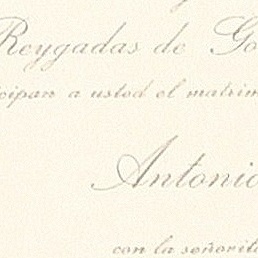 Reygadas de Go
cipan a usted el matrim
Antonio
con la señorita